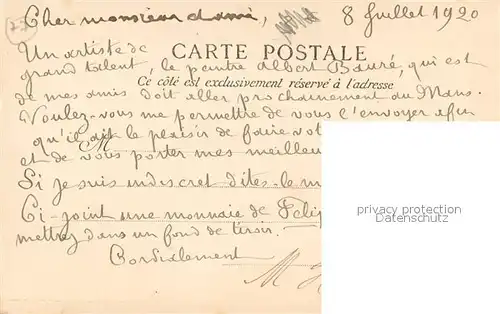 Cher monsieur d'ami, 8 Juillet 1920
Un artiste de
CARTE POSTALE
grand talent, le peintre Albert qui est
Ce côté est exclusivement réservé à l'adresse
de mes amis doit aller prochainement au Mans.
Voulez-vous me permettre de vous l'envoyer afin
qu'il ait le plaisir de faire vot
M
et de vous porter mes meilleu
Si je suis indiscret dites-le m
privacy protection
Datenschutz
Ci-joint une monnaie de
mettrez dans un fond de tiroir.
Cordialement